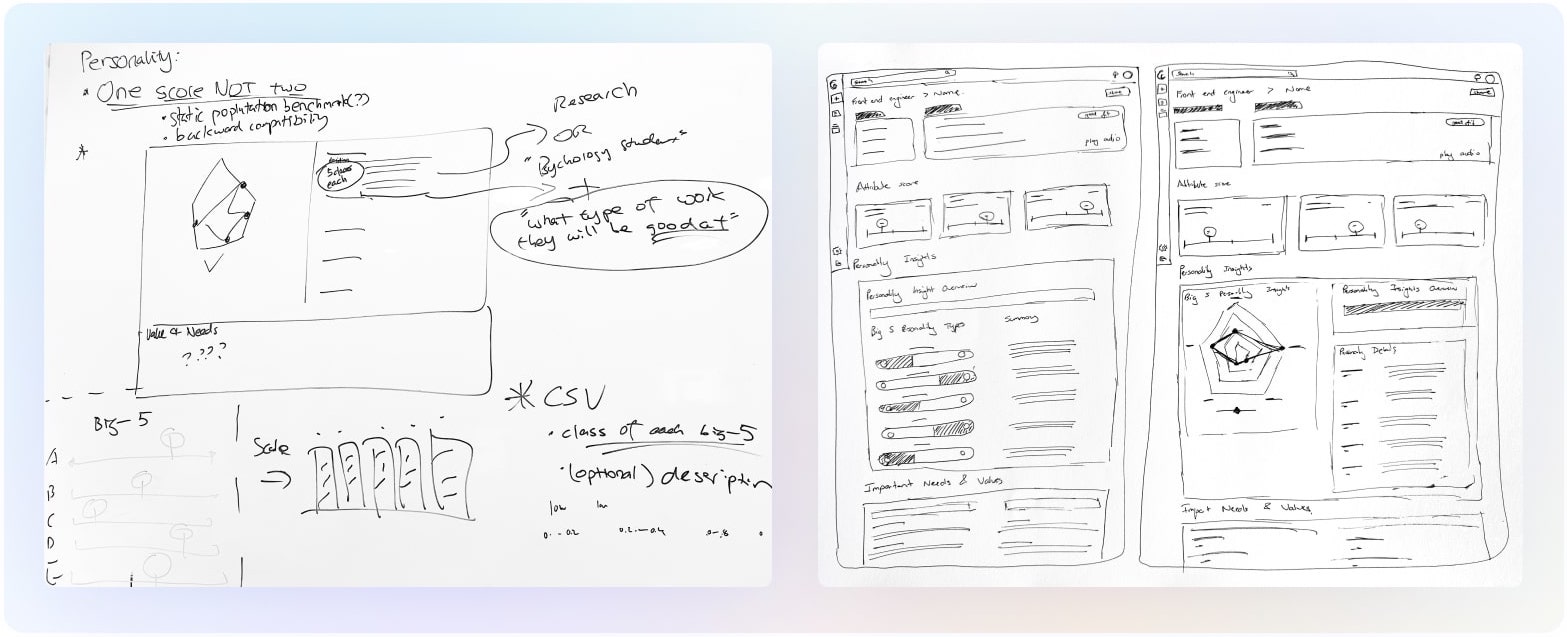 Personality:
One score NOT two
static population benchmark(??)
backward compatibility
5 class
each
Research
OR
"Pychology students"
+
"what type of work
they will be good at"
Value & Needs
????
Big-5
A
B
C
D
E
Scale
CSV
class of each big-5
(optional) description
low
0. - 0.2
0.2 - 0.4
Search
Front end engineer > Name.
good fit
play audio
Attribute score
Personality Insights
Personality Insight Overview
Big 5 Personality Types
Summary
Important Needs & Values
Search
Front end engineer > Name
good fit
play audio
Attribute score
Personality Insights
Big 5 Personality Insights
Personality Insights Overview
Personality Details
Import Needs & Values